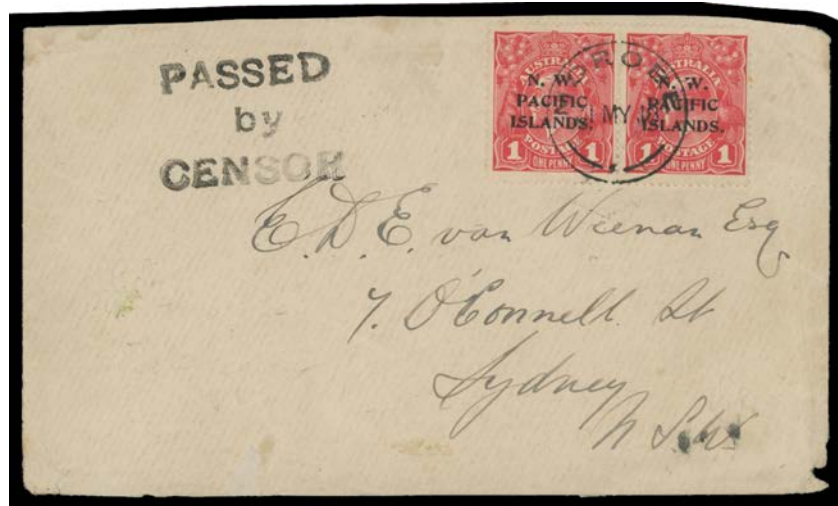 PASSED
by
CENSOR
AUSTRALIA
N. W.
PACIFIC
ISLANDS.
POSTAGE
1 1
ONE PENNY
AUSTRALIA
N. W.
PACIFIC
ISLANDS.
POSTAGE
1 1
ONE PENNY
MY
E. D. E. van Weenan Esq
7. O'Connell St
Sydney
N S.W.